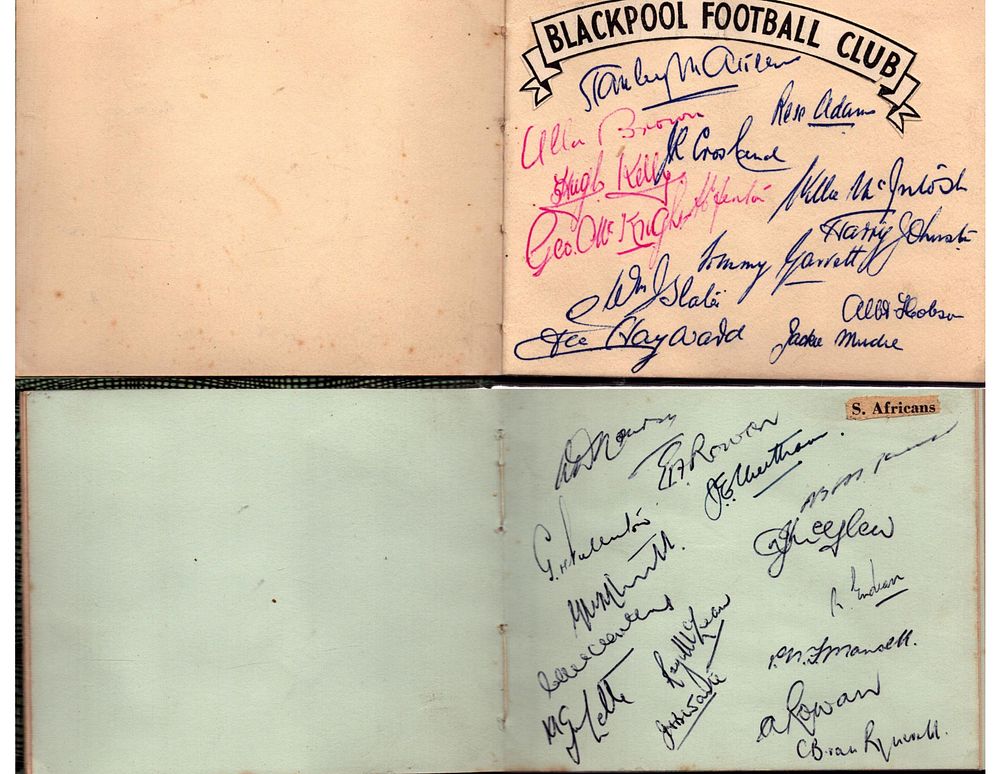 BLACKPOOL FOOTBALL CLUB
Stanley Matthews
Rex Adams
Allan Brown
JR Crosland
Hugh Kelly
Willie McIntosh
Geo. McKnight
Fenton
Harry Johnston
Tommy Garrett
Wm J Slater
Albt Hobson
Hayward
Jackie Mudie
S. Africans
E.A. Rowan
J.E. Cheetham
McGlew
G. Fullerton
R. Endean
P.N.F Mansell.
Roy McLean
J.H.B Waite
A Rowan